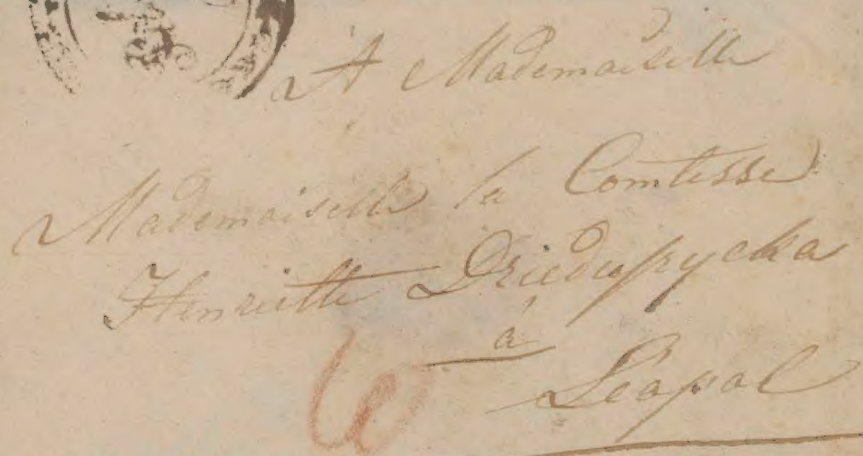 A Mademoiselle
Mademoiselle la Comtesse
Henriette Dzieduszycka
à
Léopol